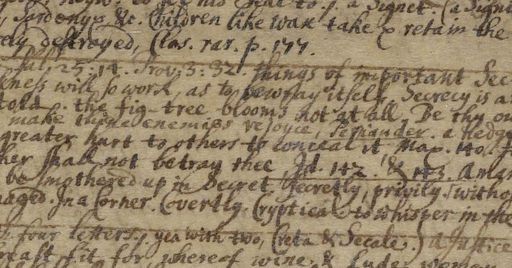 a Signet
, Sardonyx, &c. Children like Wax take & retain the
destroyed, Clas. rar. p. 177.
Psal. 25. 14. Prov. 3. 32. things of important Sec
will so work, as to bewray itself, Secrecy is a
told. the fig-tree blooms not at all. Be thy ow
make thine enemies rejoyce,
greater hart to others to conceal it Max. 140.
her shall not betray thee Id. 142. & 143. a man
be smothered up in Secret, Secretly, privily, witho
in a Corner. Covertly. Cryptical to whisper in the
four letters. yea with two, (Seta & Secale.) a Justice
fit for whereof wine, & Lude women